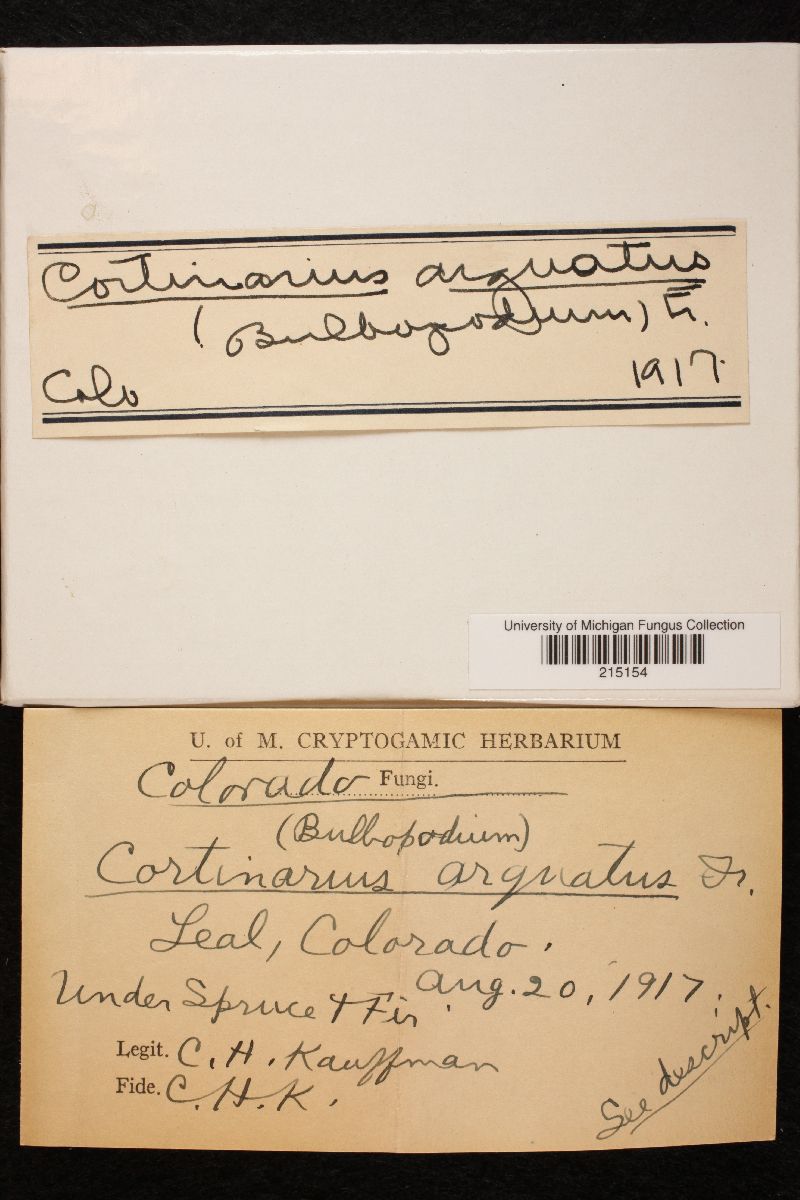 Cortinarius arquatus
(Bulbopodium) Fr.
Colo 1917.
University of Michigan Fungus Collection
215154
U. of M. CRYPTOGAMIC HERBARIUM
Colorado Fungi.
(Bulbopodium)
Cortinarius arquatus Fr.
Leal, Colorado.
Under Spruce & Fir. Aug. 20, 1917.
Legit. C. H. Kauffman
Fide. C. H. K.
See descript.